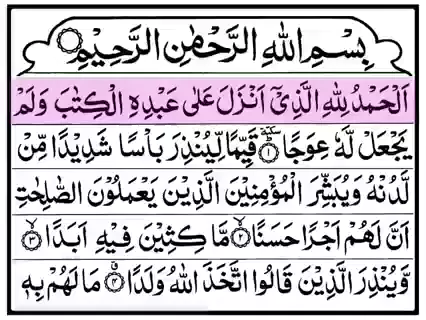 بِسْمِ اللهِ الرَّحْمٰنِ الرَّحِيْمِ
اَلْحَمْدُ لِلّٰهِ الَّذِيْٓ اَنْزَلَ عَلٰى عَبْدِهِ الْكِتٰبَ وَلَمْ
يَجْعَلْ لَّهٗ عِوَجًا ۜ ﴿١﴾ قَيِّمًا لِّيُنْذِرَ بَاْسًا شَدِيْدًا مِّنْ
لَّدُنْهُ وَيُبَشِّرَ الْمُؤْمِنِيْنَ الَّذِيْنَ يَعْمَلُوْنَ الصّٰلِحٰتِ
اَنَّ لَهُمْ اَجْرًا حَسَنًا ﴿٢﴾ مَّا كِثِيْنَ فِيْهِ اَبَدًا ﴿٣﴾
وَّيُنْذِرَ الَّذِيْنَ قَالُوا اتَّخَذَ اللهُ وَلَدًا ﴿٤﴾ مَا لَهُمْ بِهٖ